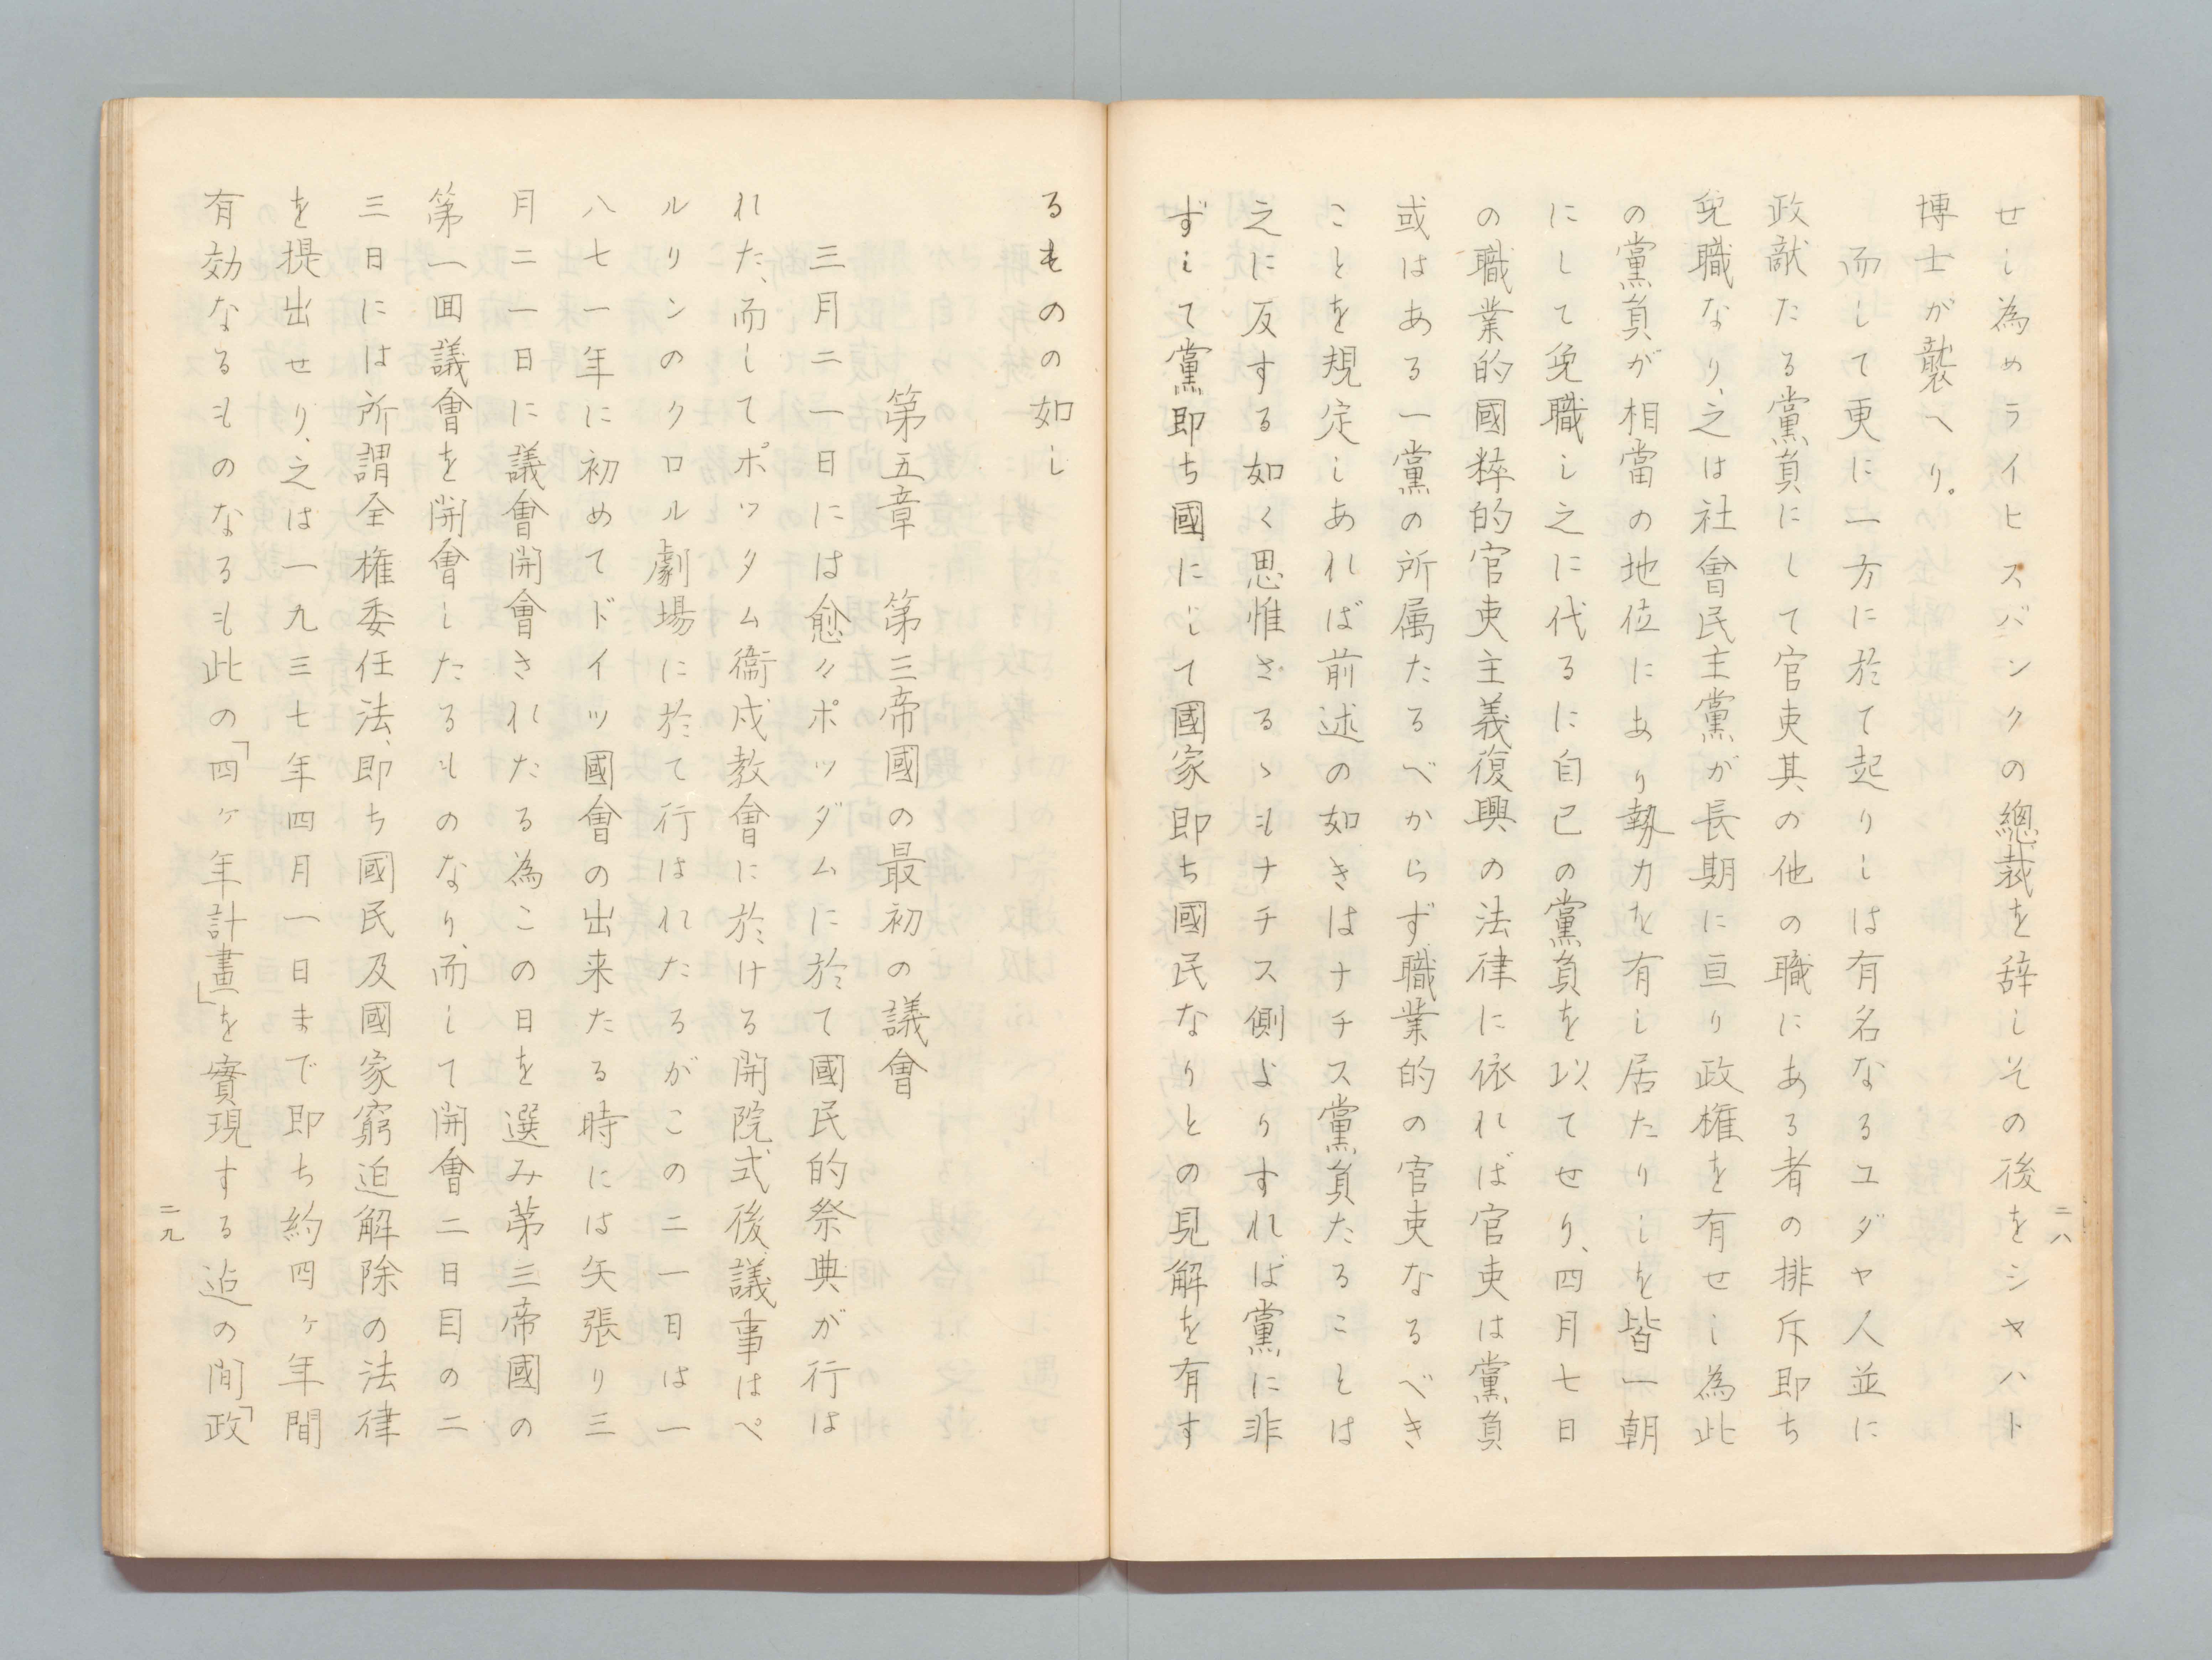 せし為めライヒスバンクの總裁を辞しその後をシヤハト
博士が襲へり。
而して更に一方に於て起りしは有名なるユダヤ人並に
政敵たる黨員にして官吏其の他の職にある者の排斥即ち
免職なり、之は社會民主黨が長期に亘り政権を有せし為此
の黨員が相當の地位にあり勢力を有し居たりしを皆一朝
にして免職し之に代るに自己の黨員を以てせり、四月七日
の職業的國粹的官吏主義復興の法律に依れば官吏は黨員
或はある一黨の所属たるべからず職業的の官吏なるべき
ことを規定しあれば前述の如きはナチス黨員たることは
之に反する如く思惟さるゝもナチス側よりすれば黨に非
ずして黨即ち國にして國家即ち國民なりとの見解を有す
二八
るものの如し
第五章 第三帝國の最初の議會
三月二一日には愈々ポツダムに於て國民的祭典が行は
れた、而してポツタム衞戍教會に於ける開院式後議事はベ
ルリンのクロル劇場に於て行はれたるがこの二一日は一
八七一年に初めてドイツ國會の出来たる時には矢張り三
月二一日に議會開會されたる為この日を選み第三帝國の
第一回議會を開會したるものなり、而して開會二日目の二
三日には所謂全権委任法、即ち國民及國家窮迫解除の法律
を提出せり、之は一九三七年四月一日まで即ち約四ヶ年間
有効なるものなるも此の「四ヶ年計畫」を實現する迠の間「政
二九